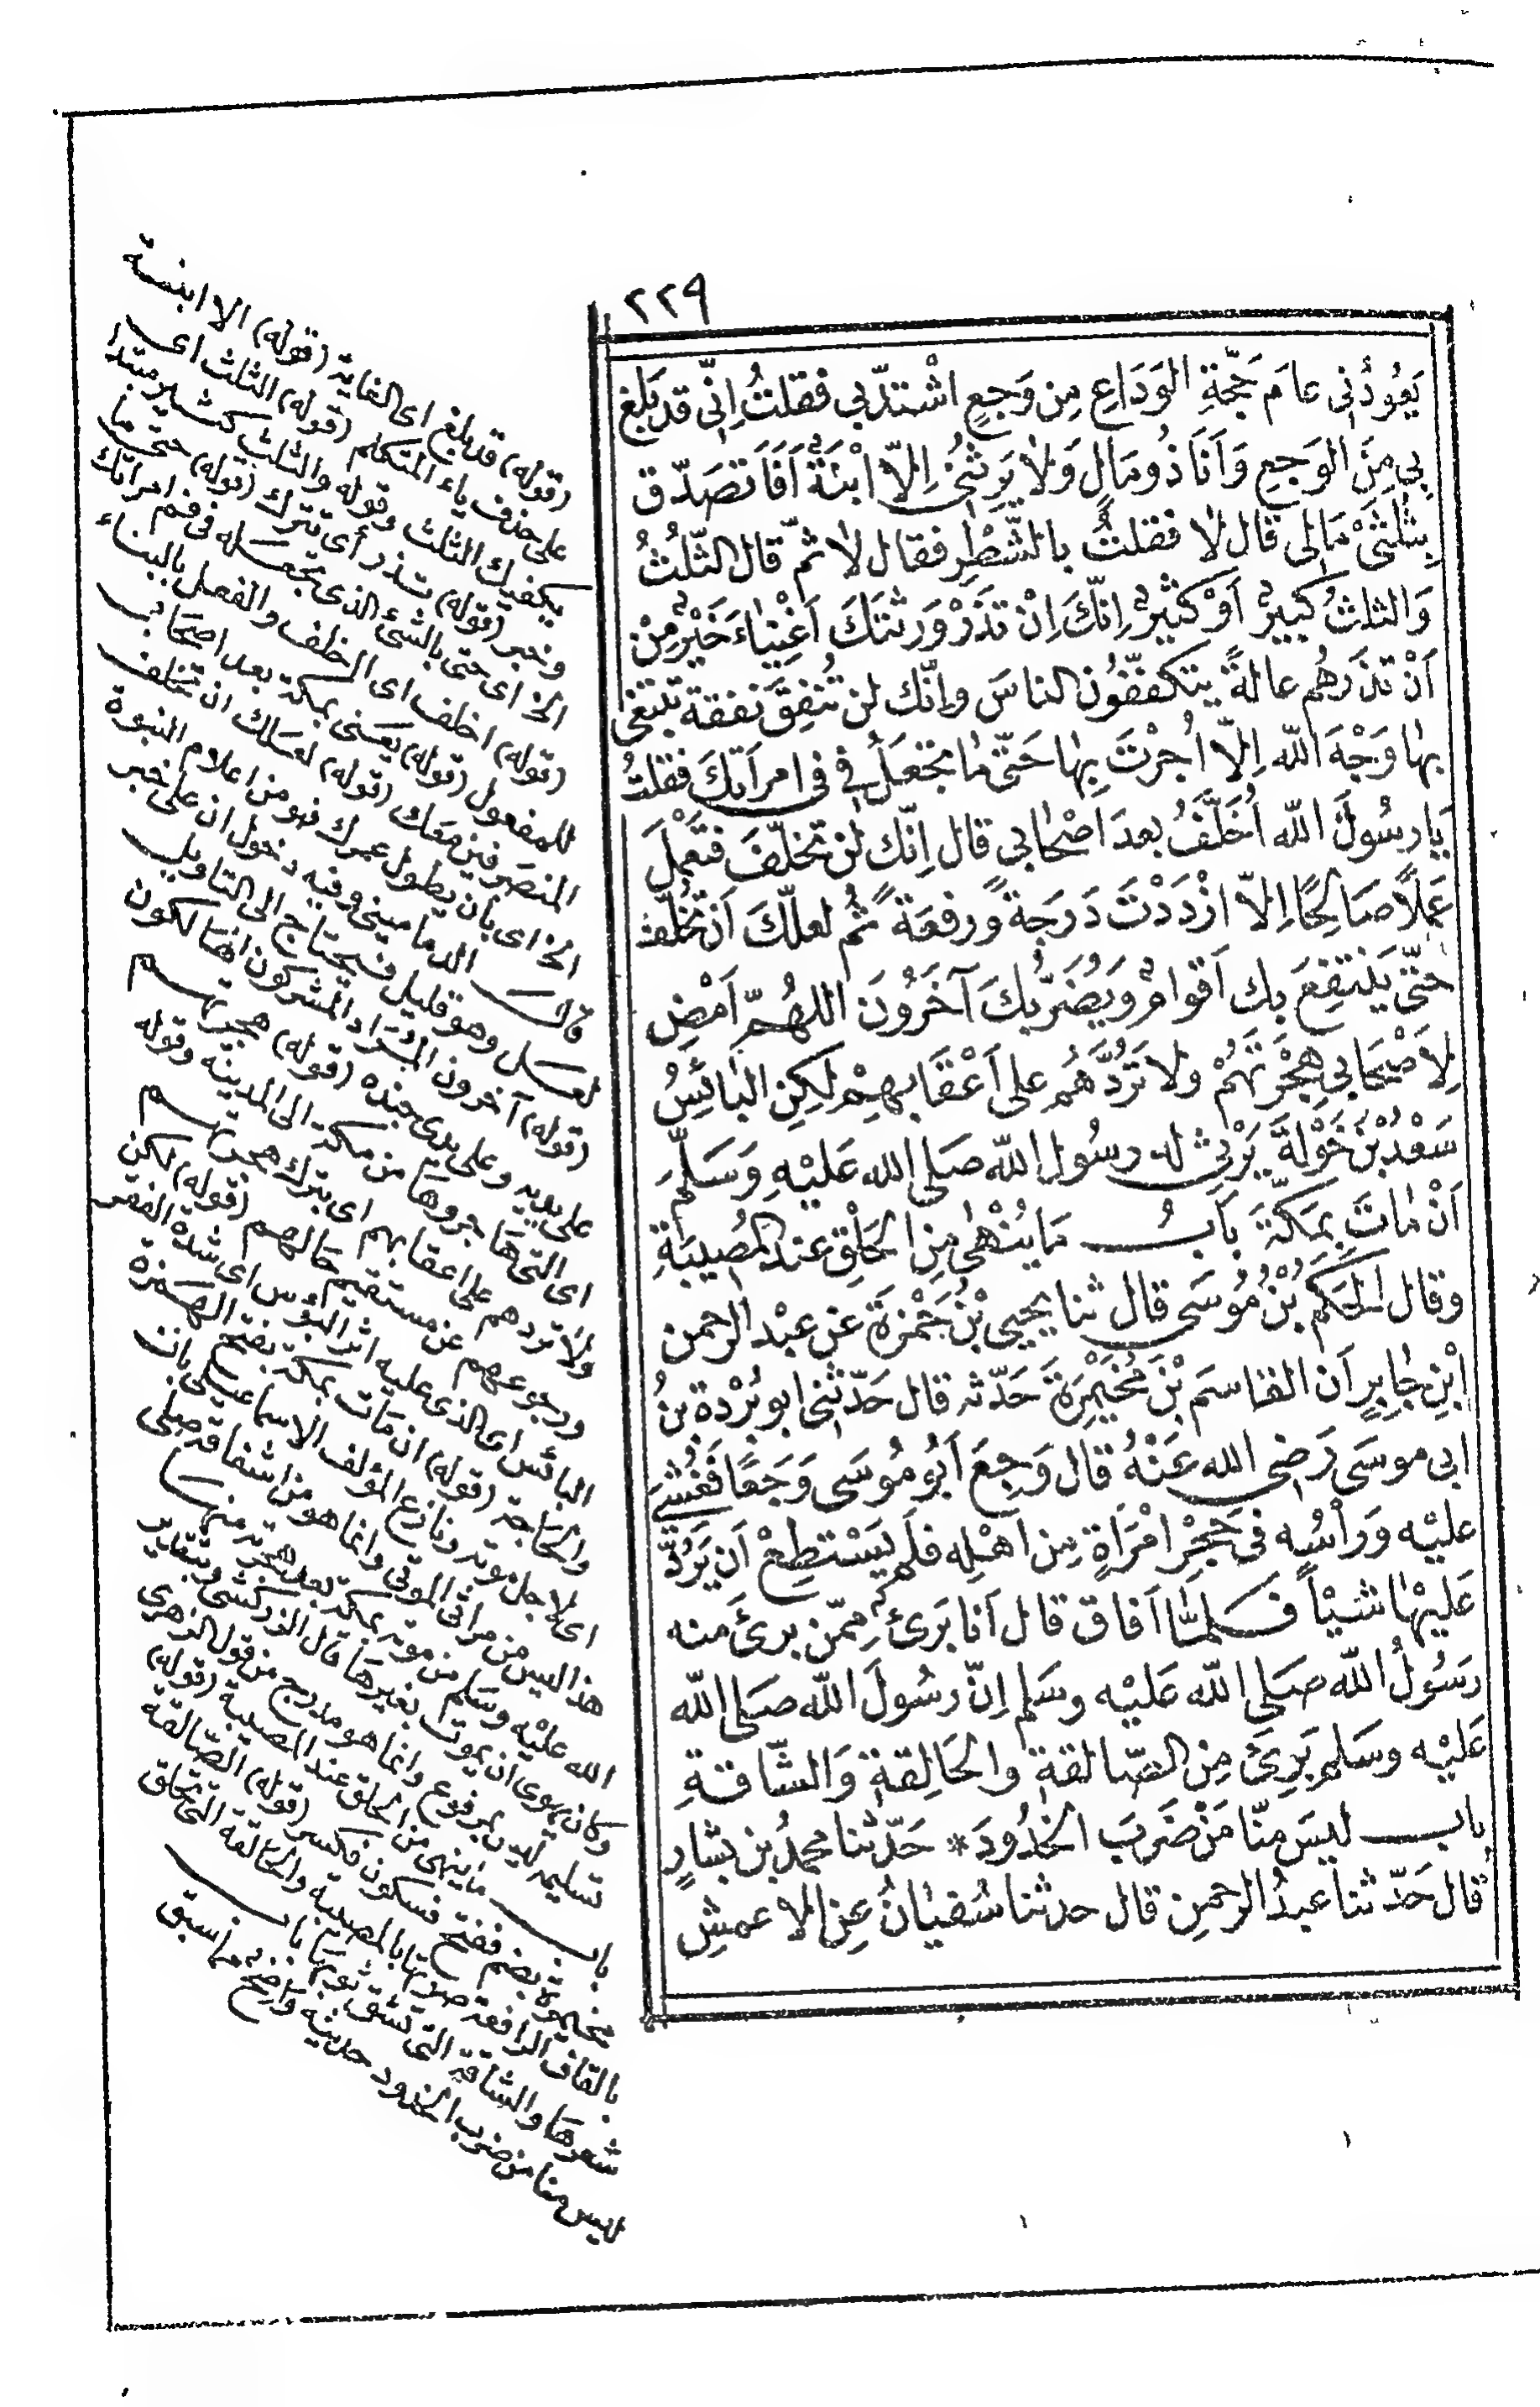 ٢٢٩
يَعُودُنِي عامَ حَجَّةِ الوَدَاعِ مِن وَجعٍ اشْتدَّ بي فقلتُ اِنِّي قد بَلغ
بِي مِنَ الوَجعِ وَاَنَا ذُو مَالٍ وَلا يَرِثُنِي اِلاّ ابْنَةٌ اَفَاَتصَدَّق
بِثُلثَيْ مَالِي قال لا فقلتُ بالشَّطْرِ فقال لا ثمّ قال الثّلُثُ
وَالثلثُ كبيرٌ اَوْ كثيرٌ اِنَّكَ اِنْ تَذَرْ وَرثتَكَ اَغْنِيَاءَ خَيْرٌ مِنْ
اَنْ تَذَرَهُم عالةً يتكفّفُون الناسَ وانّك لن تُنفِقَ نفقة تبتغي
بها وَجْهَ اللّه اِلاّ اُجِرْتَ بِها حَتّى ما تجْعَلُ في في امراَتكَ فقلتُ
يا رسُولَ اللّه اُخَلَّفُ بعدَ اَصْحابي قال اِنّك لن تخلّفَ فتعْمَلَ
عَمَلاً صَالِحًا اِلاّ ازْدَدْتَ دَرَجَةً وَرفعَةً ثُم لعلّكَ اَن تُخلّفَ
حَتّى يَنْتفِعَ بك اَقوامٌ وَيُضَرُّ بكَ آخَرُونَ اللهُمّ اَمْضِ
لِاَصْحَابِي هِجْرَتَهُمْ ولا تَرُدَّهُم على اَعْقَابِهِمْ لكِنِ البَائِسُ
سَعْدُ بْنُ خَوْلَةَ يَرْثِي له رسُول اللّه صلى الله عَليْهِ وَسَلَّمَ
اَنْ مَاتَ بمَكّةَ بَابُ مَا يُنْهَى مِنَ الحَلْقِ عند المُصِيبَةِ
وقال الحَكَمُ بْنُ مُوسَى قال ثنا يحيى بْنُ حَمْزةَ عَن عبْد الرحمن
ابْنِ جَابِرٍ اَن القاسَم بْنَ مُخَيْمِرَةَ حَدّثه قال حَدّثني ابو بُرْدةَ بنُ
ابى موسَى رَضي الله عَنْهُ قال وَجِعَ اَبُو مُوسَى وَجَعًا فَغُشِيَ
عليْه وَرَأْسُه فى حَجْرِ امْرَاَةٍ مِن اَهْلِه فلَم يَسْتطِعْ اَن يَرُدَّ
عَليْهَا شيْاً فَلَمّا اَفاق قال اَنا بَرئٌ مِمّن برئَ منه
رَسُولُ اللّه صَلى اللّه عَليْه وسَلم اِنّ رسُولَ اللّه صَلى اللّه
عَليْه وسَلم بَرِئَ مِن الصّالقةِ والحَالِقةِ وَالشّاقةِ
باب ليسَ مِنّا مَنْ ضَرَبَ الخُدُودَ * حَدّثنا محمدُ بن بشارٍ
قال حَدّثنا عبدُ الرحمنِ قال حدثنا سُفيانُ عن الاعمشِ
(قوله) قد بلغ اى الغاية (قوله) الا ابنة
على حذف ياء المتكلم (قوله) الثلث اى
يكفيك الثلث وقوله والثلث كثير مبتدا
وخبر (قوله) تذر أى تترك (قوله) حتى ما
الخ اى حتى بالشئ الذى تجعله فى فم امراتك
(قوله) اخلف اى الخلف والفعل بالبناء
للمفعول (قوله) يعنى بمكة بعد اصحاب
المنصرفين معك (قوله) لعلك ان تتخلف
الخ اى بان يطول عمرك فهو من اعلام النبوة
قال الدمامينى وفيه دخول ان على خبر
لعل وهو قليل فيحتاج الى التاويل
(قوله) آخرون المراد المشركون انما لكون
على يديه وعلى يدى جنده (قوله) هجرتهم
اى التى هاجروها من مكة الى المدينة وقوله
ولا تردهم على اعقابهم اى بترك هجرتهم
ورجوعهم عن مستقيم حالهم (قوله) لكن
البائس اى الذى عليه اثر البؤس اى شدة الفقر
والحاجة (قوله) ان مات بمكة بفتح الهمزة
اى لاجل موته ونازع المؤلف الاسماعيلى بان
هذا ليس من مراثى الموتى وانما هو من اشفاقه صلى
الله عليه وسلم من موته بمكة بعد هجرته منها
وكان يهوى ان يموت بغيرها قال الزركشى وبتقدير
تسليمه ليس بمرفوع وانما هو مدرج من قول الزهرى
باب ما ينهى من الحلق عند المصيبة (قوله)
مخيمرة بضم ففتح فسكون فكسر (قوله) الصالقة
بالقاف الرافعة صوتها بالمصيبة والحالقة التى تحلق
شعرها والشاقة التى تشق ثوبها باب
ليس منا من ضرب الخدود حديثه واضح مما سبق